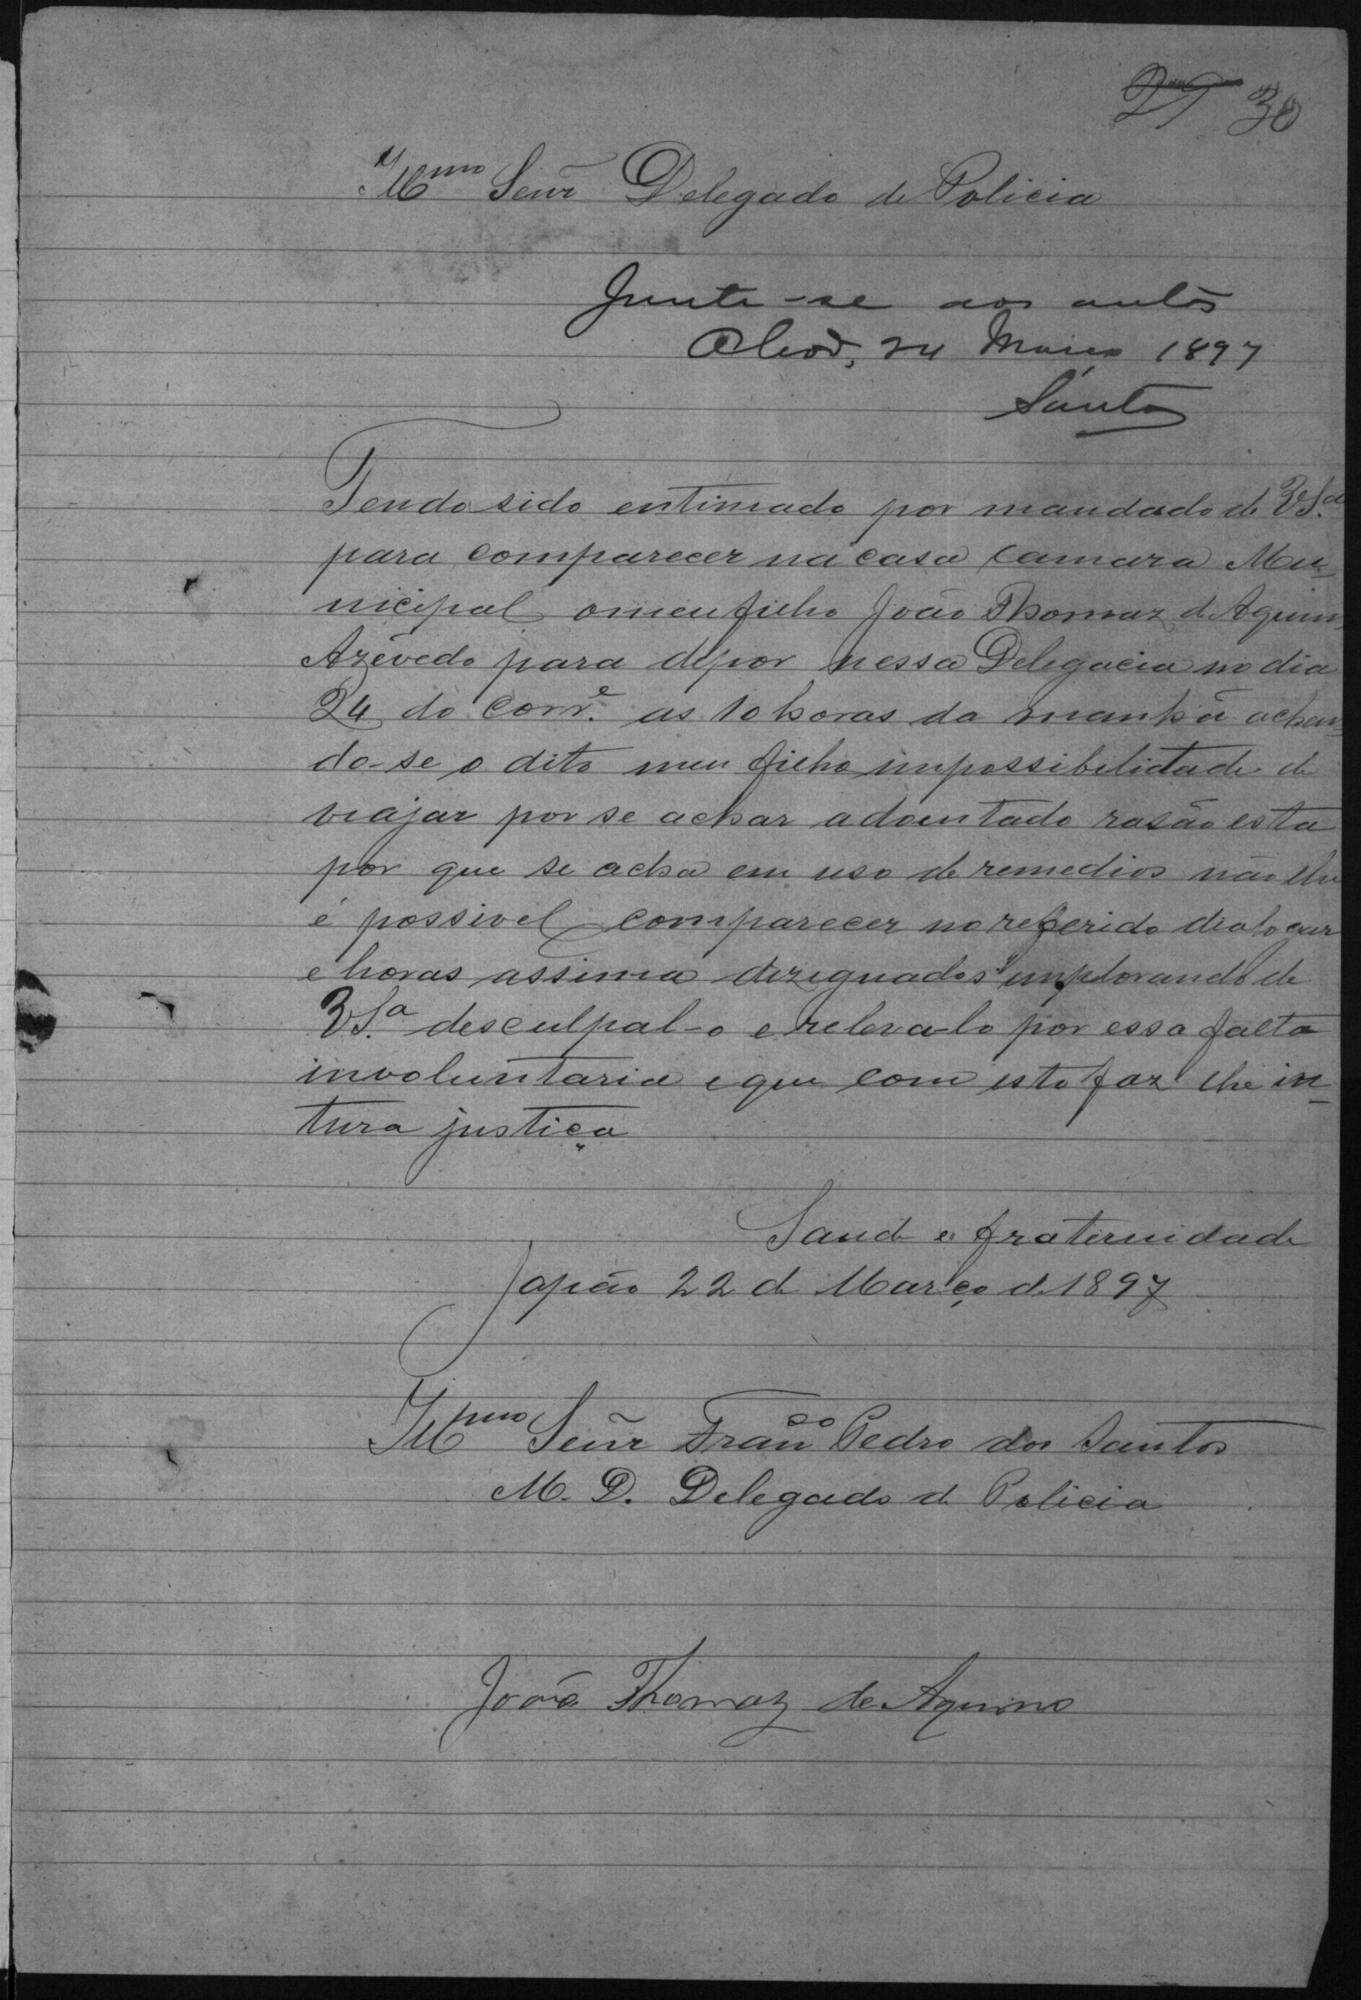 27 30
Illmo Senr Delegado de Policia
Junte-se aos autos
24 Março 1897
Santos
Tendo sido entimado por mandado de V. S.ª
para comparecer na casa Camara Mu-
nicipal o meu filho João Thomaz de Aquino
Azevedo para depor nessa Delegacia no dia
24 do corr.e as 10 horas da manhã achan-
do-se o dito meu filho impossibelitade de
viajar por se achar adoentado rasão esta
por que se acha em uso de remedios não lhe
é possivel comparecer no referido dia logar
e horas assima dezignados implorando de
V. S.ª desculpal-o e releva-lo por essa falta
involuntaria e que com isto faz lhe in-
tura justiça
Saude e fraternidade
Japão 22 de Março de 1897
Illmo Senr Franco Pedro dos Santos
M. D. Delegado de Policia
João Thomaz de Aquino